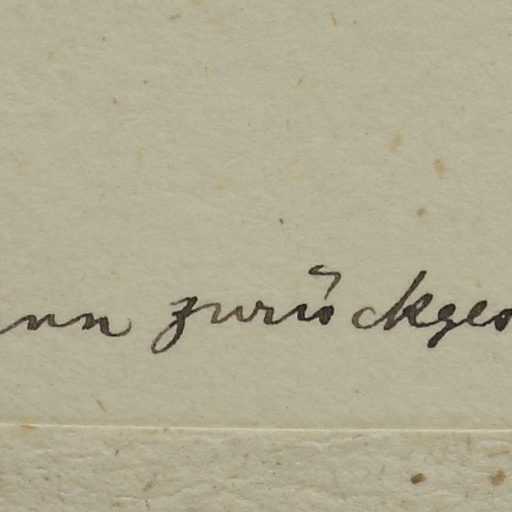 nn zurückge